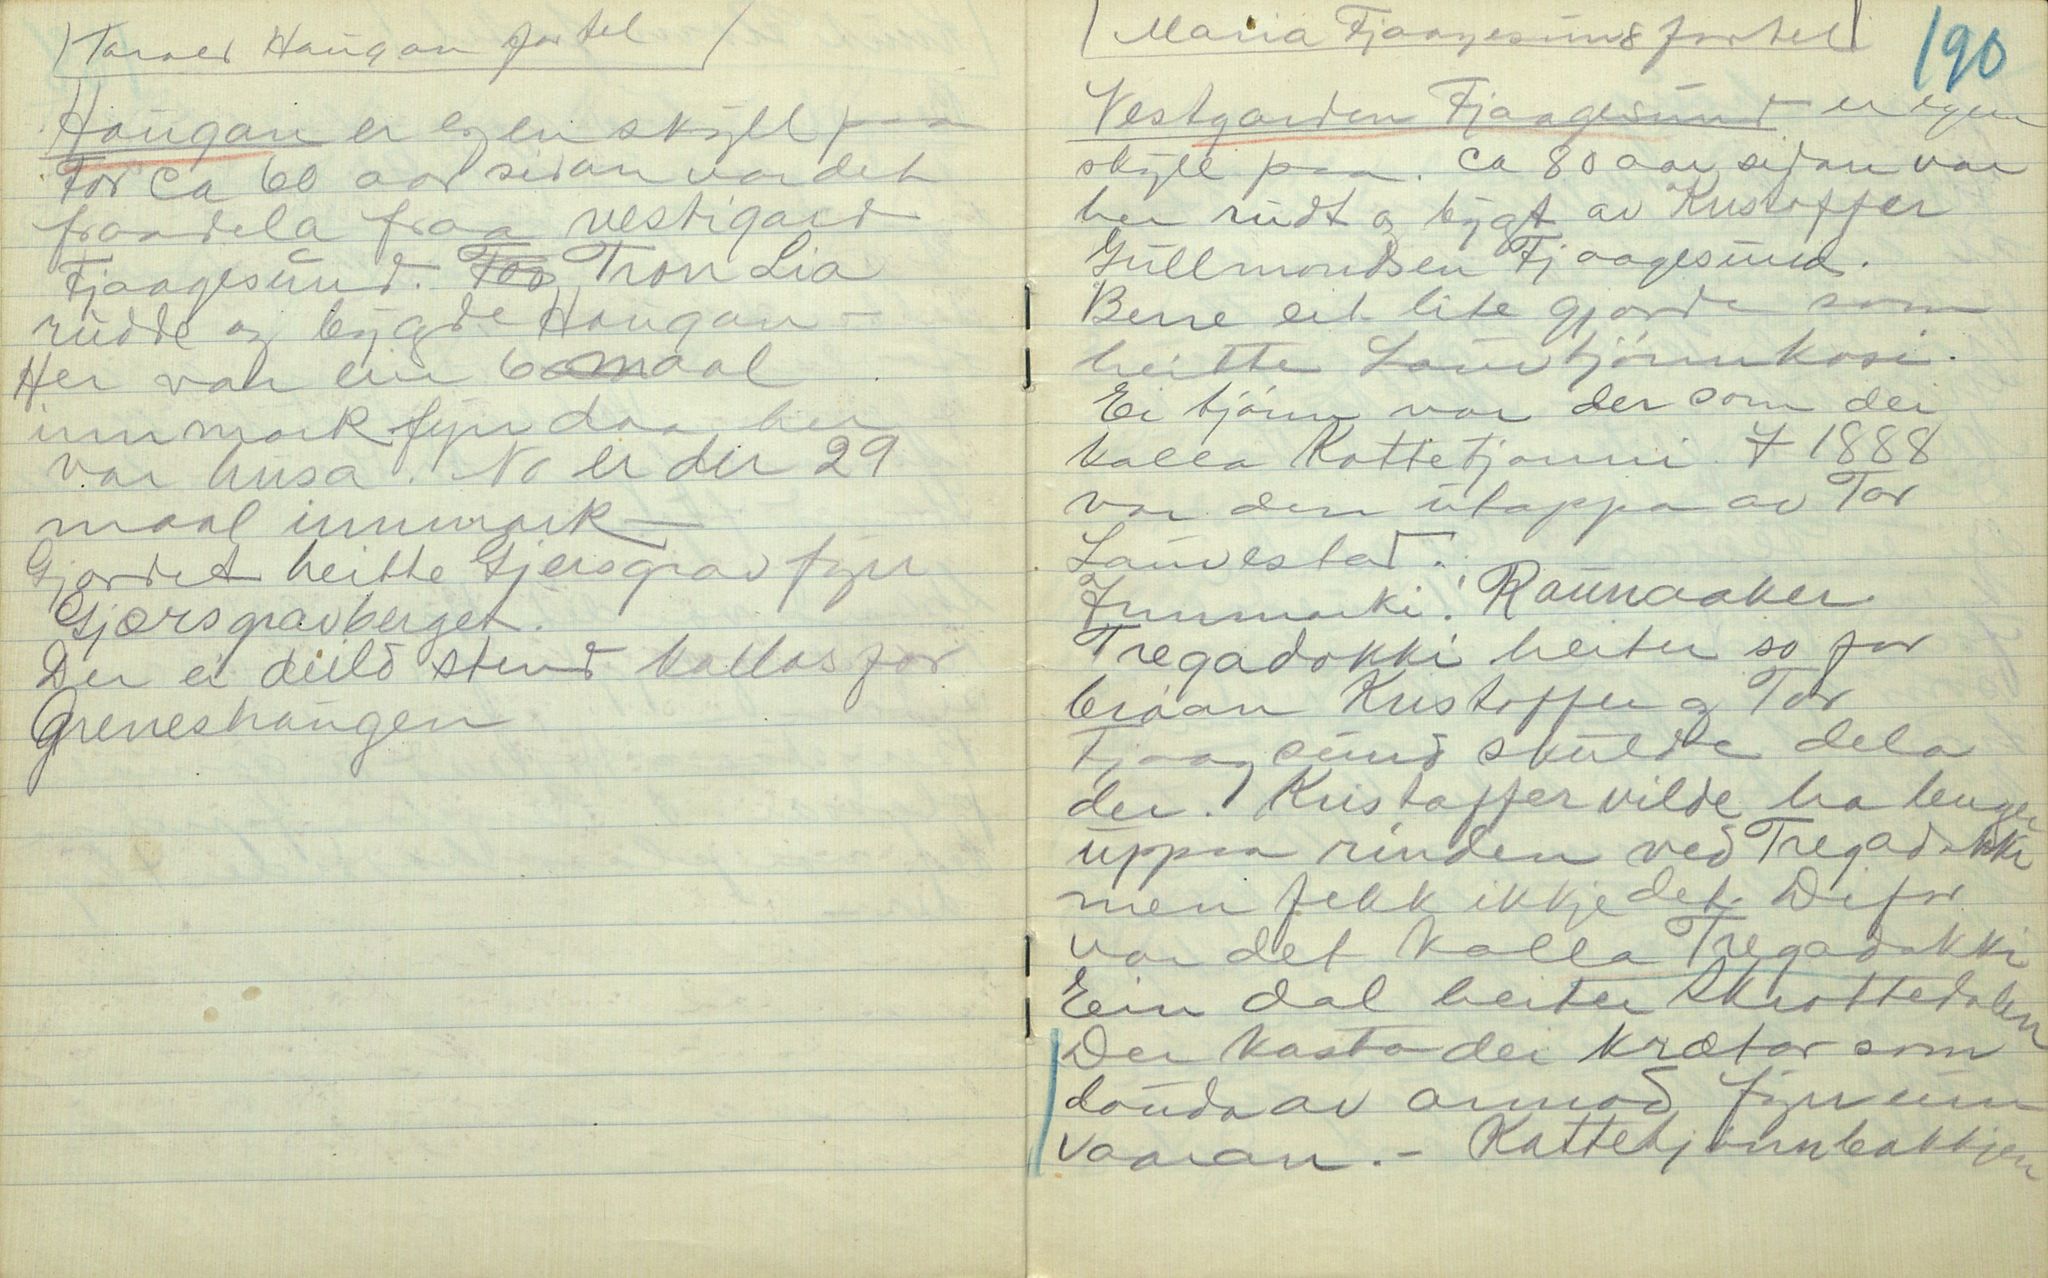 Tarald Haugan fortel
Haugan er egen skyll paa
For ca 60 aar sidan var det
fraadela fraa vestigard
Fjaagesund. For Tron Lia
rudde og bygde Haugan -
Her var ein 6 maal
innmark fyrr daa her
var husa. No er der 29
maal innmark -
Gjordet heitte Gjersgrav fyrr
Gjærsgravberget.
Der ei deild stend kallas for
Greneshaugen
Maria Fjaagesund fortel
190
Vestgarden Fjaagesund er egen
skyll paa. Ca 80 aar sidan var
her rudt og bygt av Kristoffer
Gullmondsen Fjaagesund.
Berre eit lite gjorde som
heitte Lauvtjønnkosi.
Ei tjønn var der som dei
kalla Kattetjønni. I 1888
var den utappa av Tor
Lauvestad.
Innmarki: Raunaaker
Tregadokki heiter so for
brøan Kristoffer og Tor
Fjaagesund skulde dela
der. Kristoffer vilde ha lenger
uppaa rinden ved Tregadokki
men fekk ikkje det. Difor
var det kalla Tregadokki
Ein dal heiter Skrottedalen
Der kasta dei krøtar som
dauda av armod fyrr um
vaaran. - Kattetjønnbakkjen